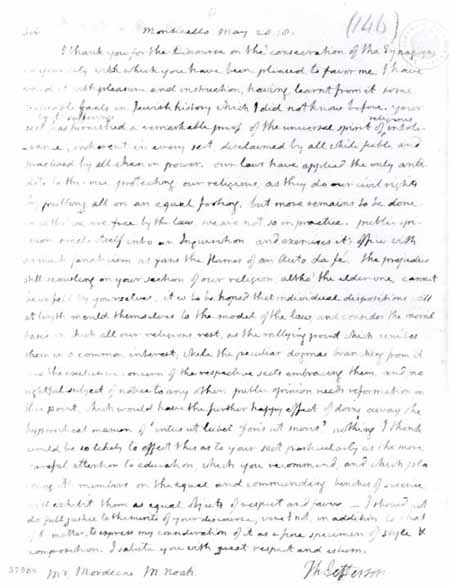 (146)
Sir Monticello May 28. 18.
I thank you for the Discourse on the consecration of the Synagogue
in your city with which you have been pleased to favor me. I have
read it with pleasure and instruction, having learnt from it some
valuable facts in Jewish history which I did not know before. your
sect by it's sufferings has furnished a remarkable proof of the universal spirit of religious intole-
rance, inherent in every sect, disclaimed by all while feeble, and
practised by all when in power. our laws have applied the only anti-
dote to this vice, protecting our religious, as they do our civil rights
by putting all on an equal footing. but more remains to be done.
for altho' we are free by the law, we are not so in practice. public opi-
nion erects itself into an Inquisition, and exercises it's office with
as much fanaticism as fans the flames of an Auto da fé. the prejudice
still scowling on your section of our religion, altho' the elder one, cannot
be unfelt by yourselves. it is to be hoped that individual dispositions will
at length mould themselves to the model of the law, and consider the moral
basis on which all our religions rest, as the rallying point which unites
them in a common interest; while the peculiar dogmas branching from it
are the exclusive concern of the respective sects embracing them, and no
rightful subject of notice to any other. public opinion needs reformation on
this point, which would have the further happy effect of doing away the
hypocritical maxim of 'intus ut lubet, foris ut moris'. nothing I think
would be so likely to effect this as to your sect particularly as the more
careful attention to education, which you recommend, and which pla-
cing it's members on the equal and commanding benches of science
will exhibit them as equal objects of respect and favor. I should not
do full justice to the merits of your discourse, were I not, in addition to that
of it's matter, to express my consideration of it as a fine specimen of style &
composition. I salute you with great respect and esteem.
Th Jefferson
Mr. Mordecai M. Noah.